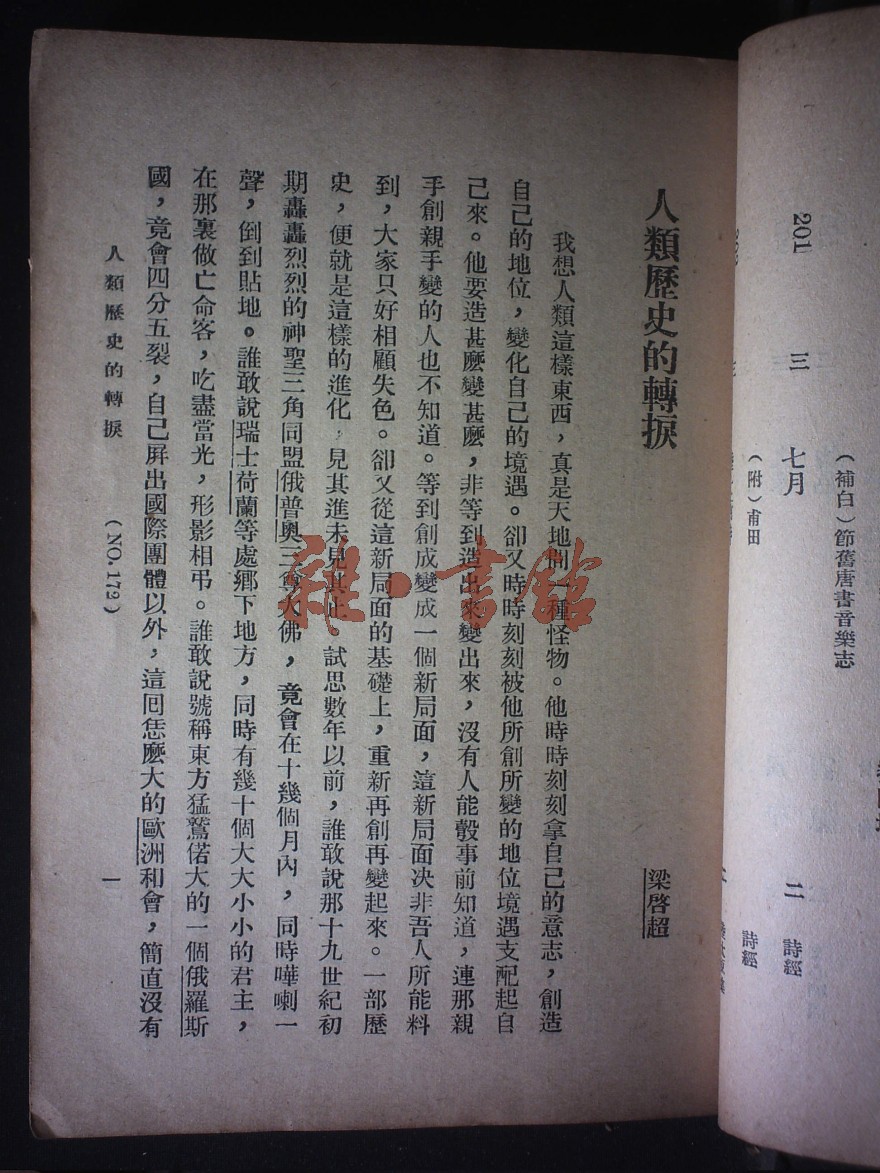 201
三
七月
二
詩經
（補白）節舊唐書音樂志
（附）甫田
詩經
人類歷史的轉捩
梁啓超
我想人類這樣東西，真是天地間一種怪物。他時時刻刻拿自己的意志，創造
自己的地位，變化自己的境遇。卻又時時刻刻被他所創所變的地位境遇支配起自
己來。他要造甚麽變甚麽，非等到造出來變出來，沒有人能彀事前知道，連那親
手創親手變的人也不知道。等到創成變成一個新局面，這新局面決非吾人所能料
到，大家只好相顧失色。卻又從這新局面的基礎上，重新再創再變起來。一部歷
史，便就是這樣的進化，見其進未見其止。試思數年以前，誰敢說那十九世紀初
期轟轟烈烈的神聖三角同盟俄普奧三尊大佛，竟會在十幾個月內，同時嘩喇一
聲，倒到貼地。誰敢說瑞士荷蘭等處鄉下地方，同時有幾十個大大小小的君主，
在那裏做亡命客，吃盡當光，形影相弔。誰敢說號稱東方猛鷲偌大的一個俄羅斯
國，竟會四分五裂，自己屏出國際團體以外，這回恁麽大的歐洲和會，簡直沒有
人類歷史的轉捩
（NO.172）
一
雜·書館